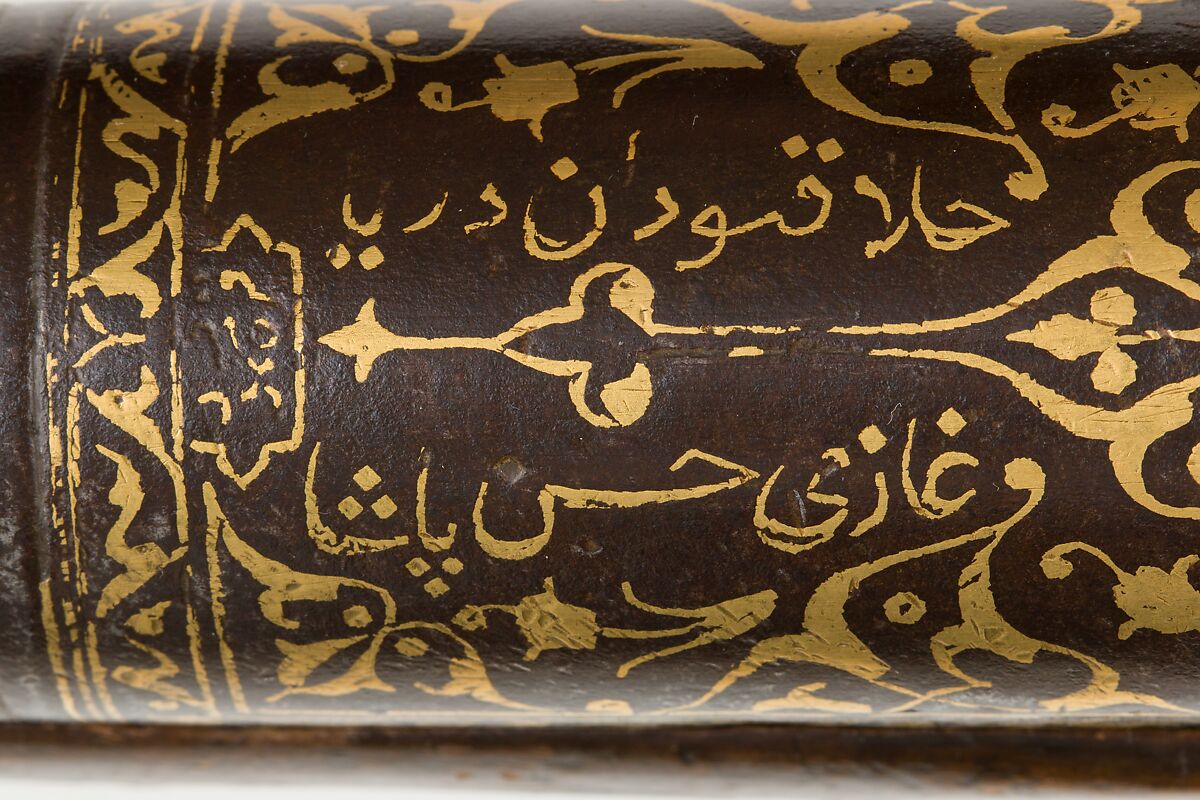 حالا قپودان دریا
غازی حسن پاشا